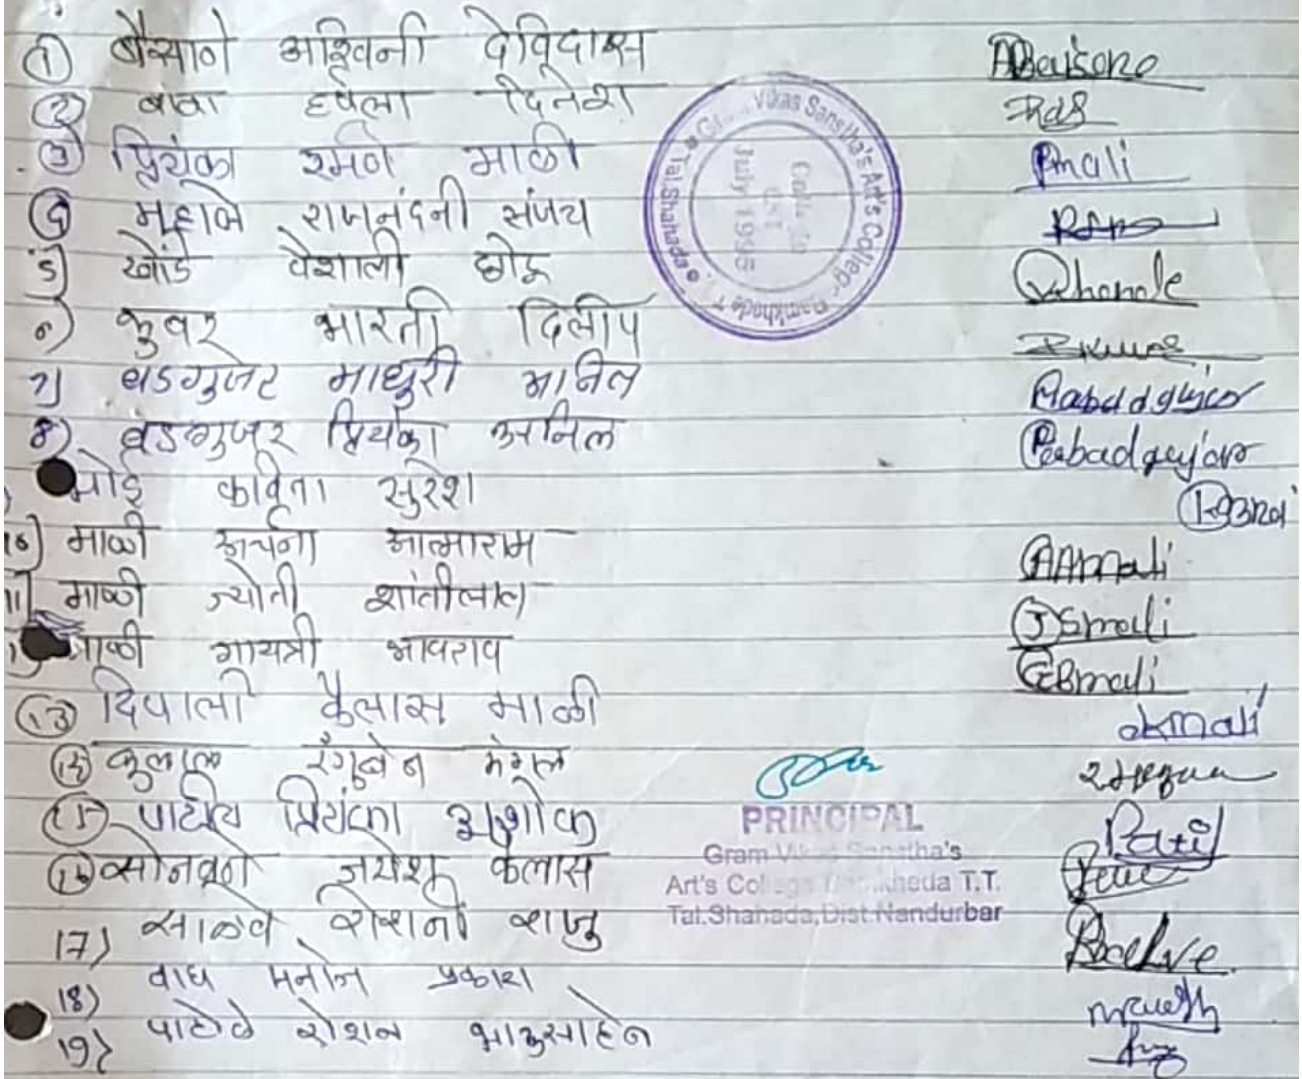 1) बैसाणे अश्विनी देविदास ABaysane
2) हर्षला दिनेश
3) प्रियंका रमण माळी Pmali
4) महाले राजनंदनी संजय
5) खोंडे वैशाली छोटू VKhonde
6) कुवर भारती दिलीप
7) बडगुजर माधुरी अनिल Mabadgujar
8) बडगुजर प्रियंका अनिल Pabadgujar
कविता सुरेश
10) माळी अर्चना आत्माराम AAmali
11) माळी ज्योती शांतीलाल JSmali
माळी गायत्री भावराव GBmali
13) दिपाली कैलास माळी dkmali
14) कुलाल रंगुबेन
15) पाटील प्रियंका अशोक Patil
16) सोनवणे जयेश कैलास
17) साळवे रोशनी राजु RSalve
18) वाघ मनोज प्रकाश
19) पाटोळे रोशन भाऊसाहेब
Vikas Sanstha's Art's College Bamkheda T.T. Tal.Shahada
July 1995
PRINCIPAL
Gram Vikas Sanstha's
Art's College Bamkheda T.T.
Tal.Shahada,Dist.Nandurbar